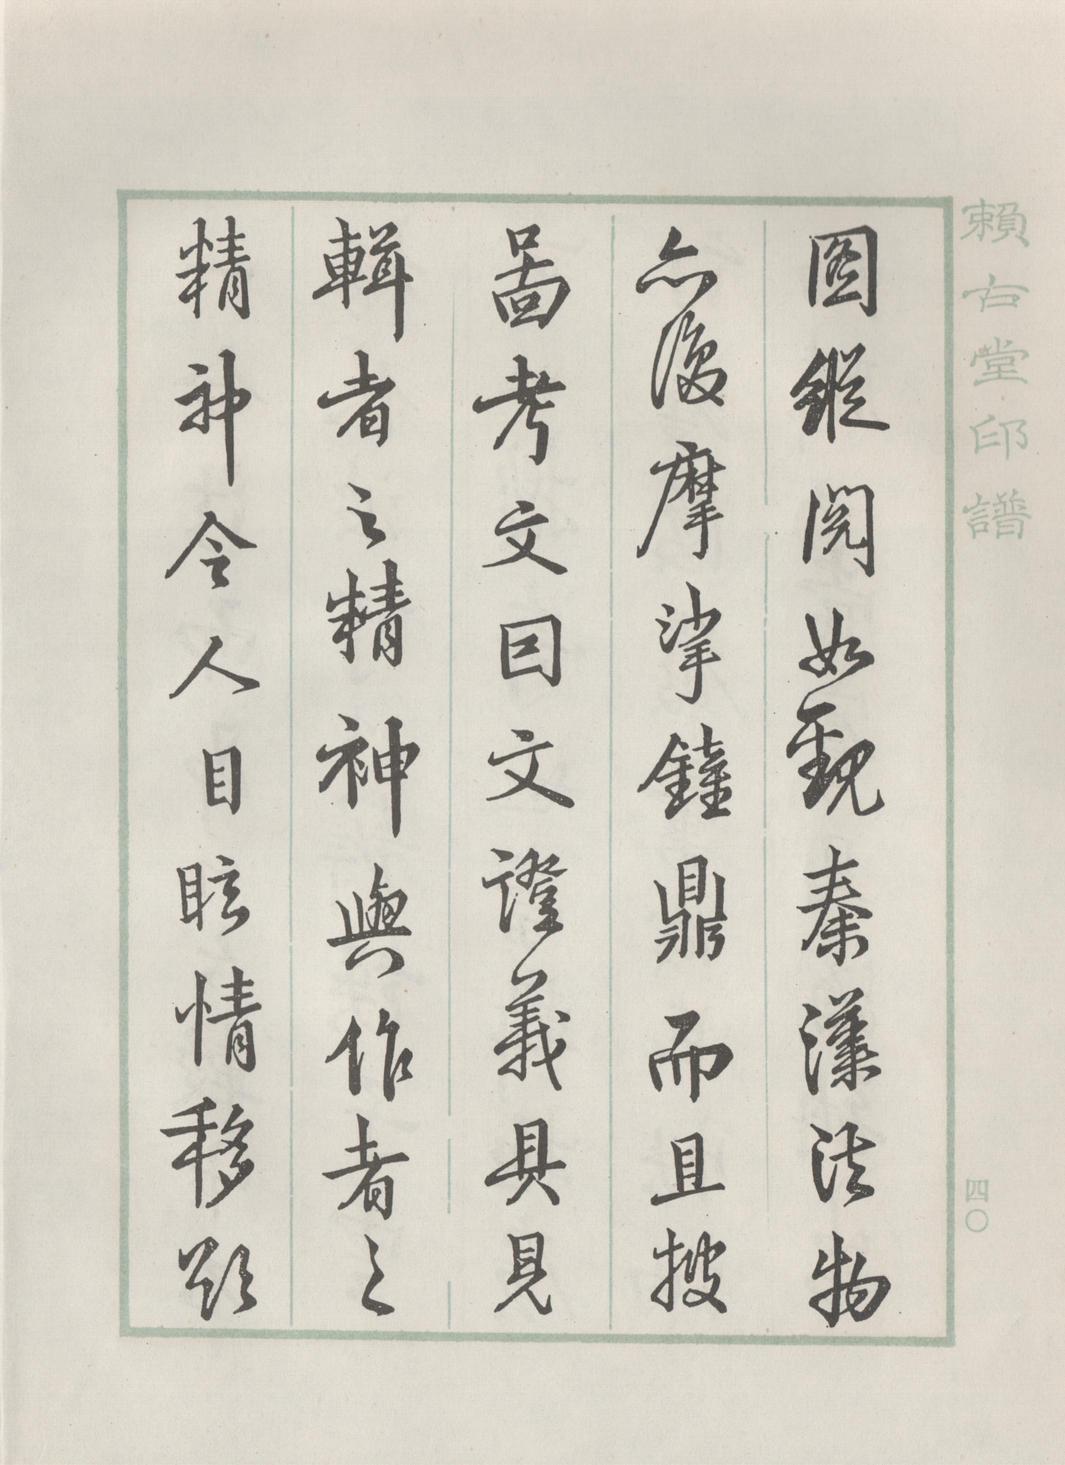 賴古堂印譜
四〇
圖縱閱如觀秦漢法物
亦復摩挲鐘鼎而且披
啚考文因文證義具見
輯者之精神與作者之
精神令人目眩情移欵